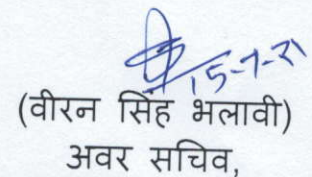 15-7-21
(वीरन सिंह भलावी)
अवर सचिव,